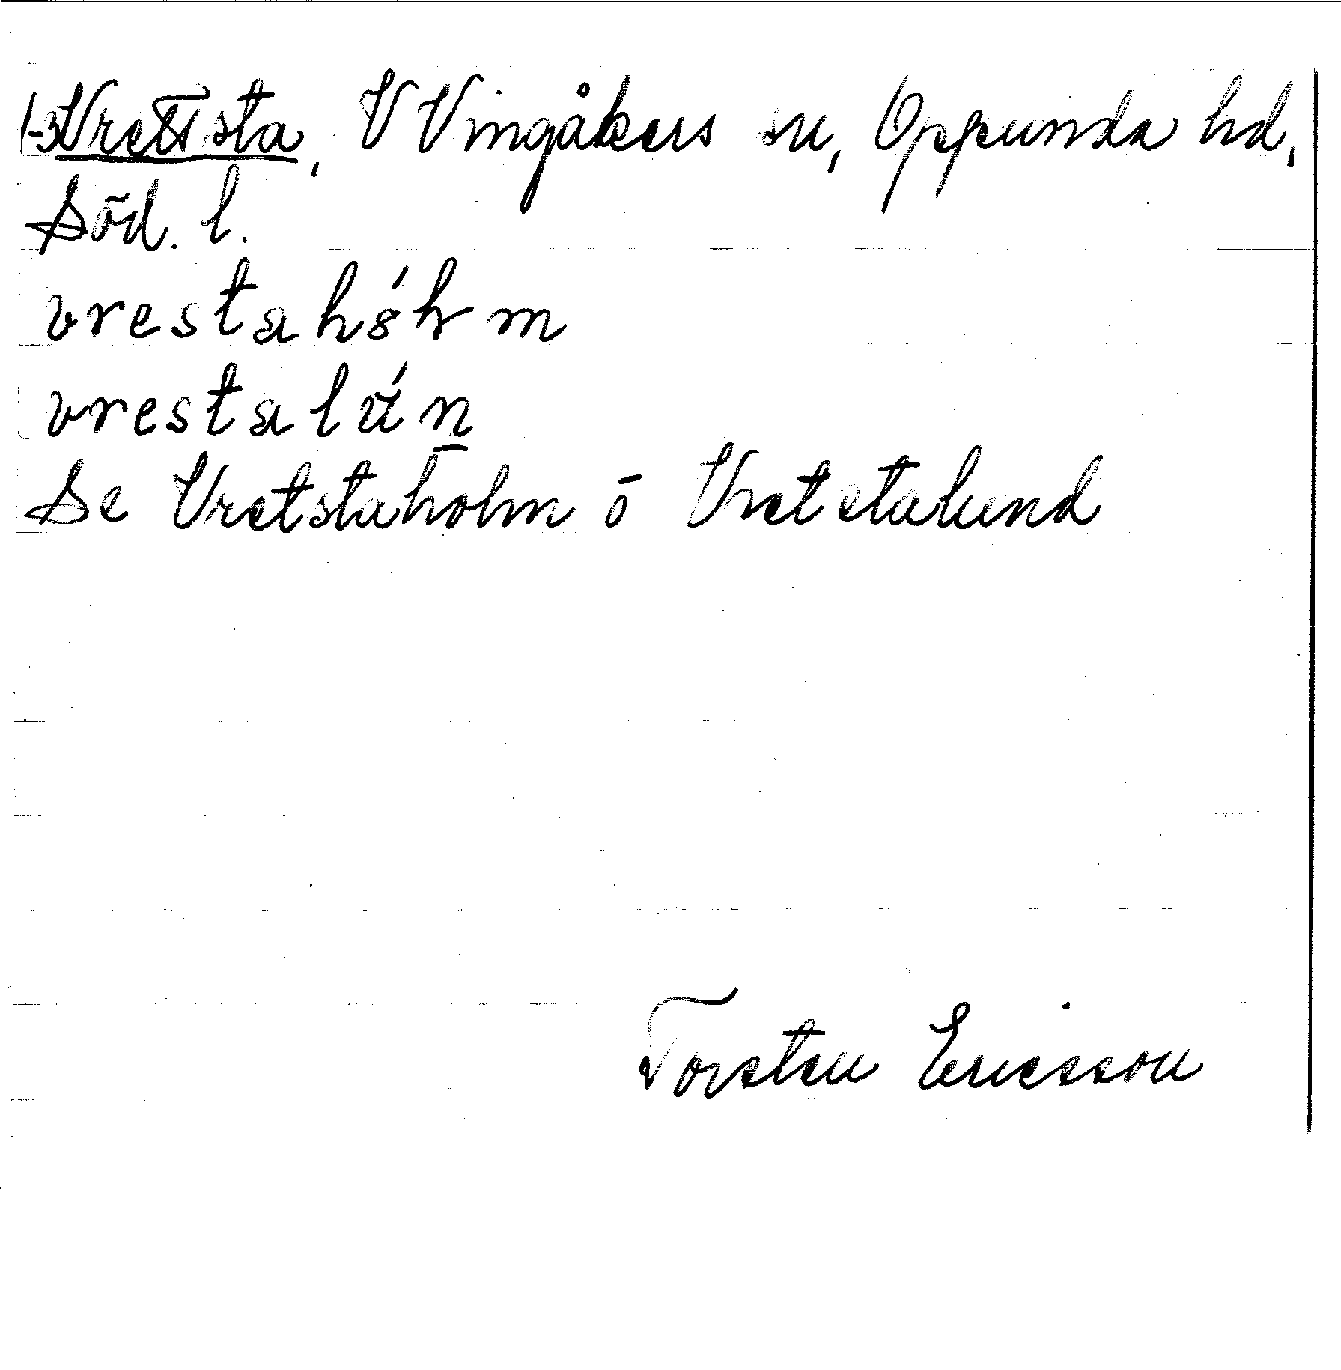 1-3 Vretsta, V Vingåkers sn, Oppunda hd,
Söd. l.
vrestahȯ́lm
Se Vretstaholm o Vretstalund
Torsten Ericsson